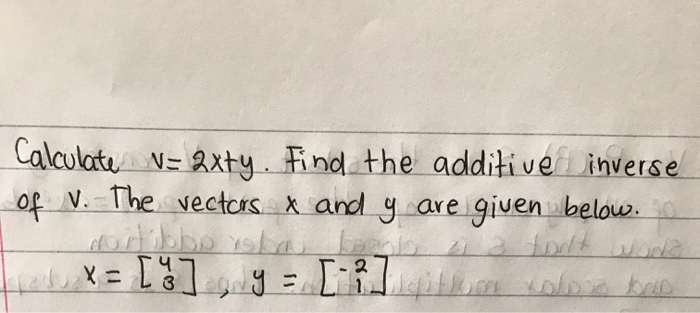 Calculate v = 2x+y. Find the additive inverse
of v. The vectors x and y are given below.
x = [4 3], y = [-2 1]